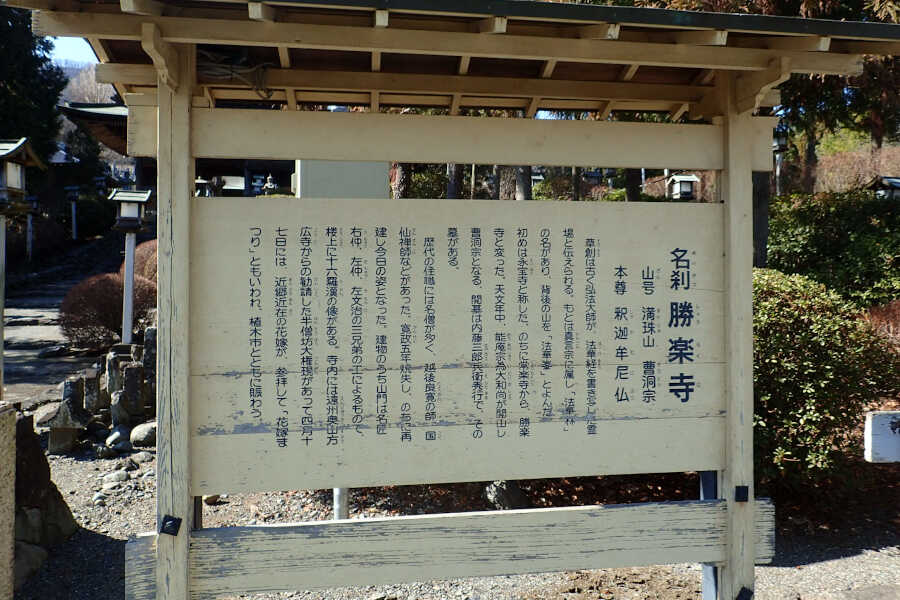 名刹 勝楽寺
山号 満珠山 曹洞宗
本尊 釈迦牟尼仏
草創は古く弘法大師が、法華経を書写した霊
場と伝えられる。もとは真言宗に属し「法華林」
の名があり、背後の山を「法華峯」とよんだ。
初めは永宝寺と称した。のちに常楽寺から、勝楽
寺と変った。天文年中、能庵宗為大和尚が開山し
曹洞宗となる。開基は内藤三郎兵衛秀行で、その
墓がある。
歴代の住職には名僧が多く、越後良寛の師 国
仙禅師などがあった。寛政五年焼失し、のちに再
建し今日の姿となった。建物のうち山門は名匠
右仲、左仲、左文治の三兄弟の工によるもので、
楼上に十六羅漢の像がある。寺内には遠州奥山方
広寺からの勧請した半僧坊大権現があって四月十
七日には、近郷近在の花嫁が、参拝して「花嫁ま
つり」ともいわれ、植木市とともに賑わう。